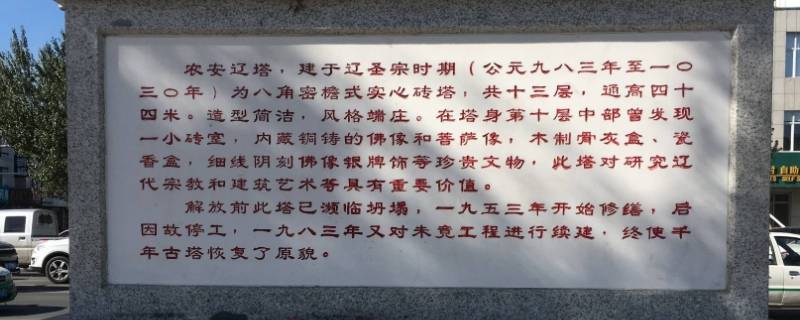 农安辽塔，建于辽圣宗时期（公元九八三年至一〇
三〇年）为八角密檐式实心砖塔，共十三层，通高四十
四米。造型简洁，风格端庄。在塔身第十层中部曾发现
一小砖室，内藏铜铸的佛像和菩萨像，木制骨灰盒、瓷
香盒，细线阴刻佛像银牌饰等珍贵文物，此塔对研究辽
代宗教和建筑艺术等具有重要价值。
解放前此塔已濒临坍塌，一九五三年开始修缮，后
因故停工，一九八三年又对未竟工程进行续建，终使千
年古塔恢复了原貌。
自助